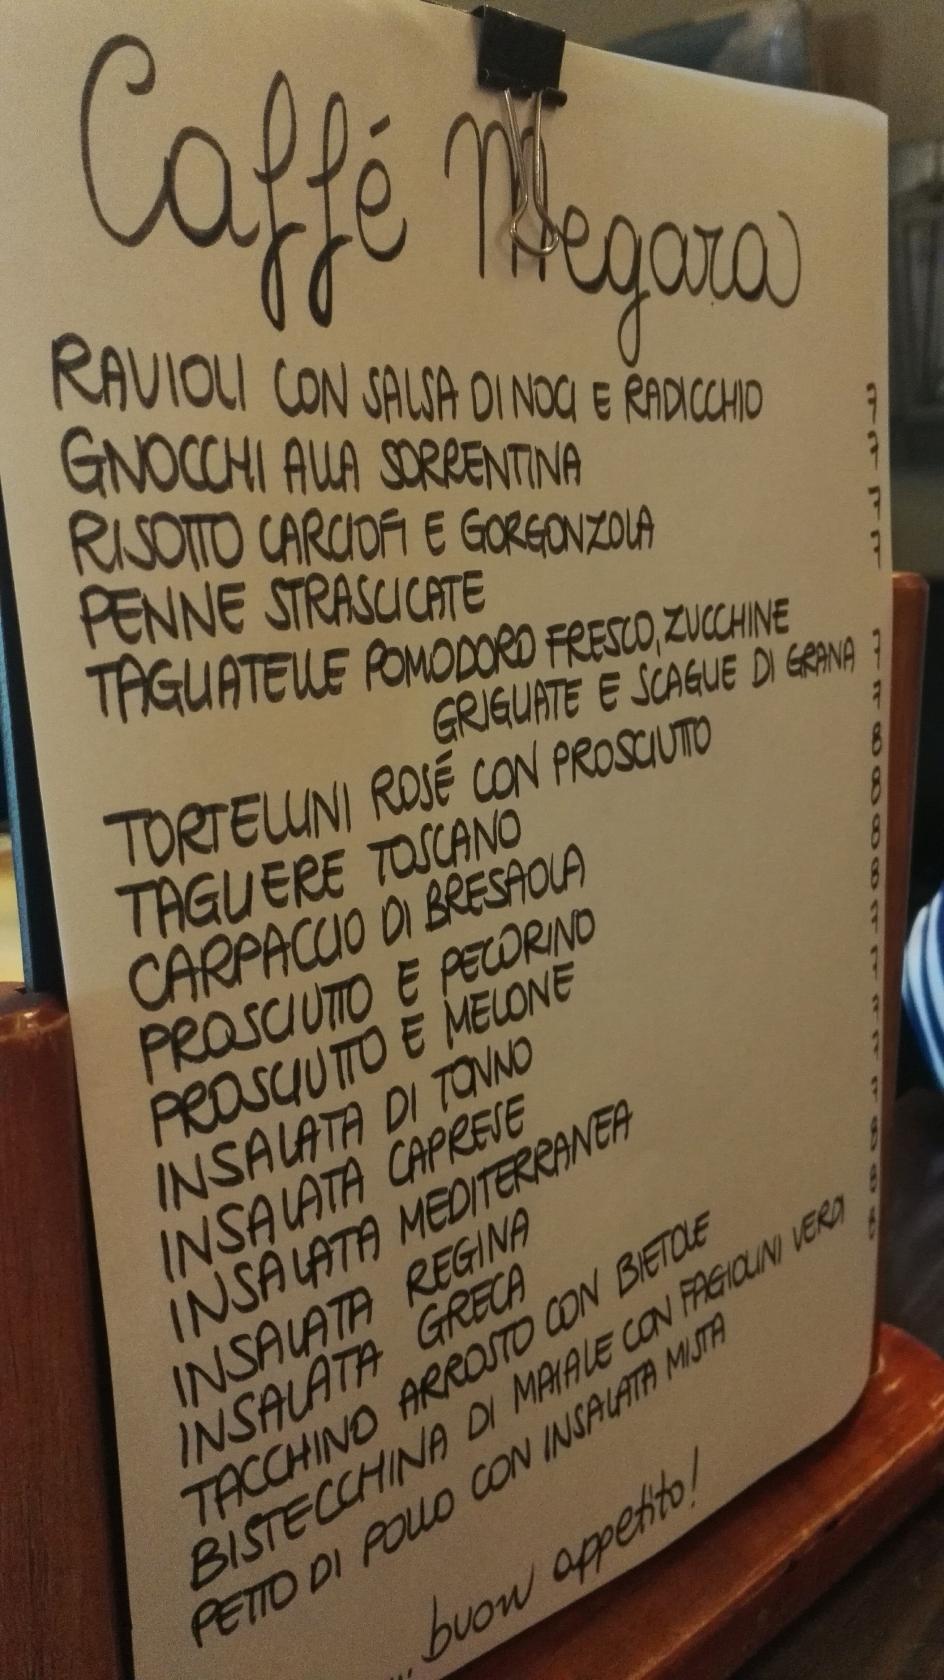 Caffé Megara
RAVIOLI CON SALSA DI NOCI E RADICCHIO 7
GNOCCHI ALLA SORRENTINA 7
RISOTTO CARCIOFI E GORGONZOLA 7
PENNE STRASCICATE 7
TAGLIATELLE POMODORO FRESCO, ZUCCHINE
GRIGLIATE E SCAGLIE DI GRANA 7
TORTELLINI ROSÉ CON PROSCIUTTO 7
TAGLIERE TOSCANO 8
CARPACCIO DI BRESAOLA 8
PROSCIUTTO E PECORINO 8
PROSCIUTTO E MELONE 8
INSALATA DI TONNO 7
INSALATA CAPRESE 7
INSALATA MEDITERRANEA 7
INSALATA REGINA 7
INSALATA GRECA 7
TACCHINO ARROSTO CON BIETOLE 8
BISTECCHINA DI MAIALE CON FAGIOLINI VERDI 8
PETTO DI POLLO CON INSALATA MISTA 8
... buon appetito!